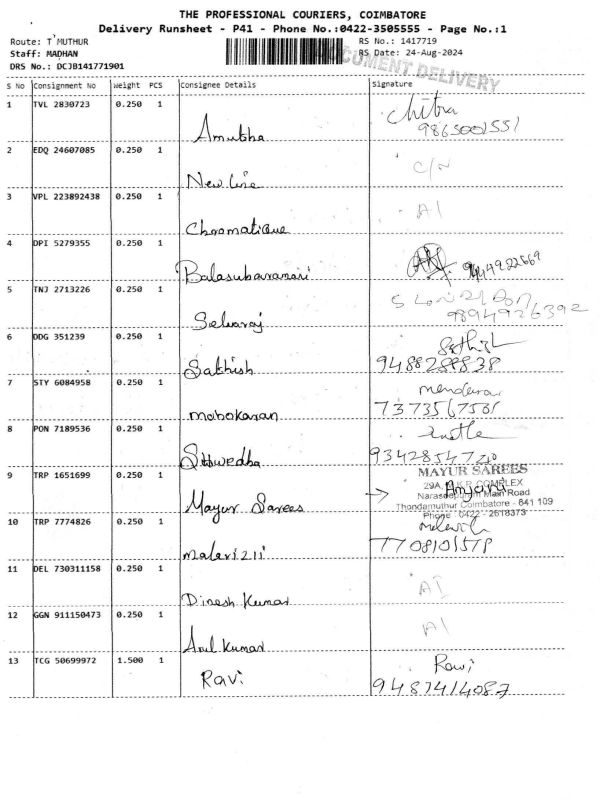 THE PROFESSIONAL COURIERS, COIMBATORE
Delivery Runsheet - P41 - Phone No.:0422-3505555 - Page No.:1
Route: T MUTHUR RS No.: 1417719
Staff: MADHAN RS Date: 24-Aug-2024
DRS No.: DCJB141771901
DOCUMENT DELIVERY
S No Consignment No Weight PCS Consignee Details Signature
1 TVL 2830723 0.250 1 Chitra
Amutha 9865001551
2 EDQ 24607085 0.250 1
New line C/N
3 VPL 223892438 0.250 1 AI
Chromatique
4 DPI 5279355 0.250 1
Balasubaramani 9444922669
5 TNJ 2713226 0.250 1
Selvaraj 9894926392
6 DDG 351239 0.250 1 Sathish
Sakhish 9488289838
7 STY 6084958 0.250 1
mobokaran 7373567501
8 PON 7189536 0.250 1
9342854720
9 TRP 1651699 0.250 1 MAYUR SAREES
29A, COMPLEX
Anjani
Main Road
Mayur Sarees Thondamuthur Coimbatore - 641 109
Phone : 0422 - 2618373
10 TRP 7774826 0.250 1
7708101578
11 DEL 730311158 0.250 1 AI
Dinesh Kumar
12 GGN 911150473 0.250 1 AI
Arul Kumar
13 TCG 50699972 1.500 1 Ravi
Ravi 9487414087